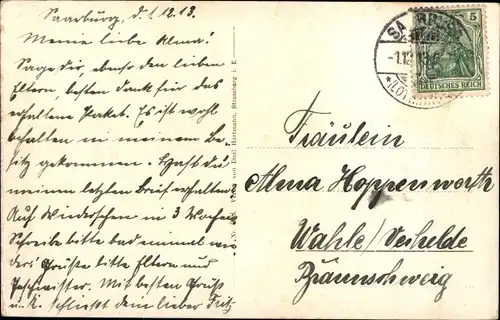 Saarburg, d. 1.12.13.
Meine liebe Alma!
Sage dir, ebenso den lieben
Eltern besten Dank für das
erhaltene Paket. Es ist wohl
behalten in meinem Be-
sitz gekommen. Hast du
meinen letzten Brief erhalten
Auf Wiedersehen in 3 Wochen
Schreibe bitte bald mal wie-
der. Grüße bitte Eltern und
Geschwister. Mit besten Gruß
u. K. schließt dein lieber Fritz
von Emil Hartmann, Strassburg i. E.
SAARBURG
-1.12.13
*(LOTHR
5
DEUTSCHES REICH
Fräulein
Alma Hoppenworth
Wahle/Vechelde
Braunschweig